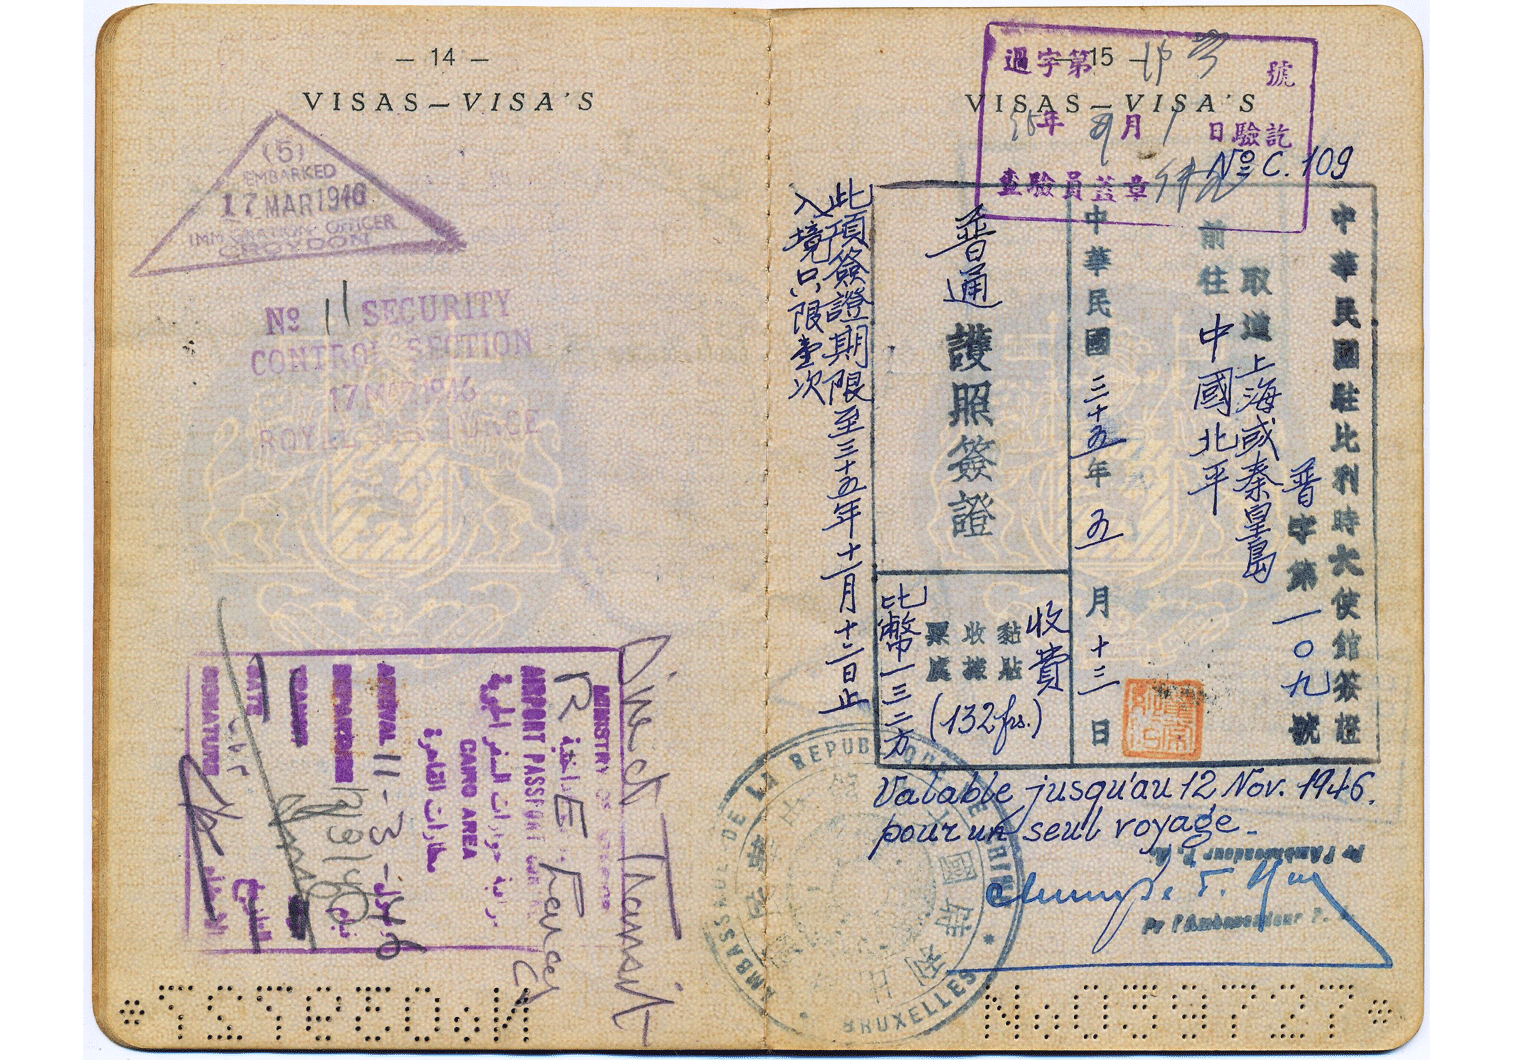 — 14 —
VISAS — VISA'S
(5)
EMBARKED
17 MAR 1946
IMMIGRATION OFFICER
CROYDON
№ 11 SECURITY
CONTROL SECTION
17 MAR 1946
Direct Transit
MINISTRY OF
AIRPORT PASSPORT
CAIRO AREA
مطارات القاهرة
ARRIVAL 11-3-46
DEPARTURE
TRANSIT
DATE
التاريخ
SIGNATURE
الامضاء
№039727*
— 15 —
VISAS — VISA'S
過字第 號
年 月 日驗訖
查驗員蓋章
№ C. 109
中華民國駐比利時大使館簽證
普字第一〇九號
取道上海或秦皇島
前往中國北平
中華民國三十五年五月十三日
普通護照簽證
收費
黏貼
收據
票處
(132 frs.)
比幣一三二方
此項簽證期限至三十五年十一月十二日止
入境只限壹次
Valable jusqu'au 12 Nov. 1946.
pour un seul voyage.
AMBASSADE DE LA REPUBLIQUE DE CHINE
* BRUXELLES *
Pr l'Ambassadeur P.
№039727*